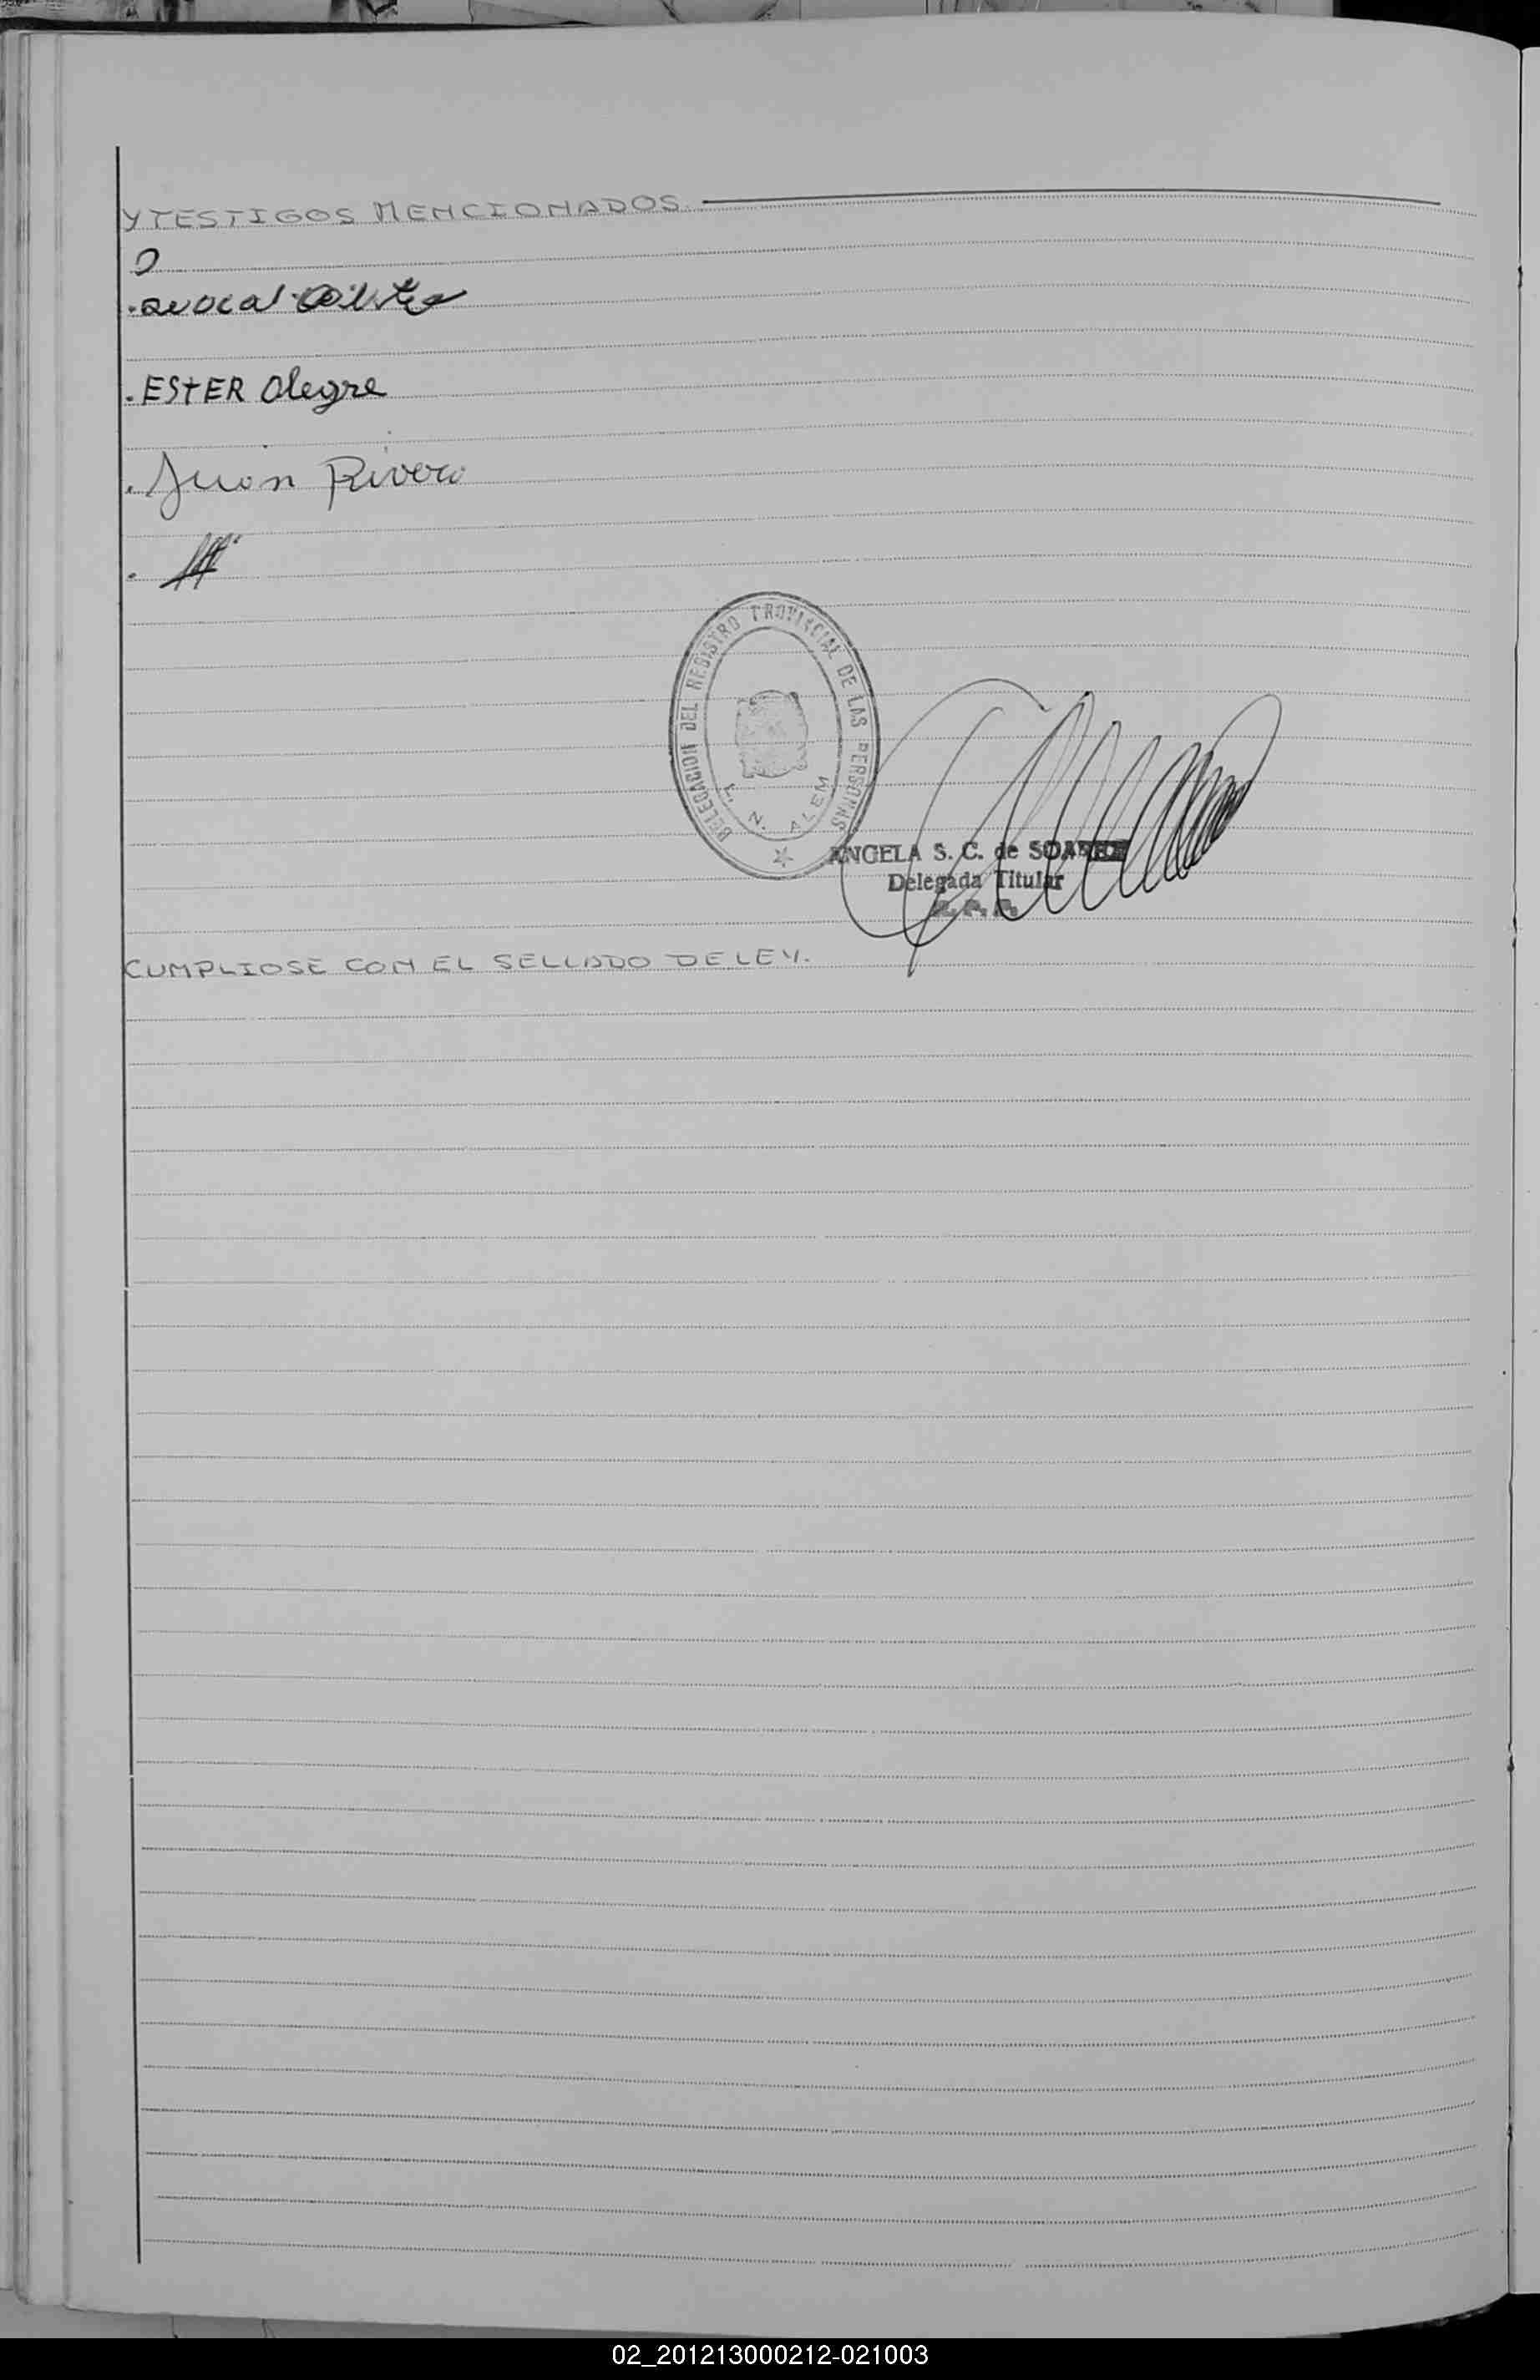 Y TESTIGOS MENCIONADOS.
. ESTER Alegre
. Juan Rivero
DELEGACION DEL REGISTRO PROVINCIAL DE LAS PERSONAS
L. N. ALEM
ANGELA S. C. de
Delegada Titular
CUMPLIOSE CON EL SELLADO DE LEY.
02_201213000212-021003